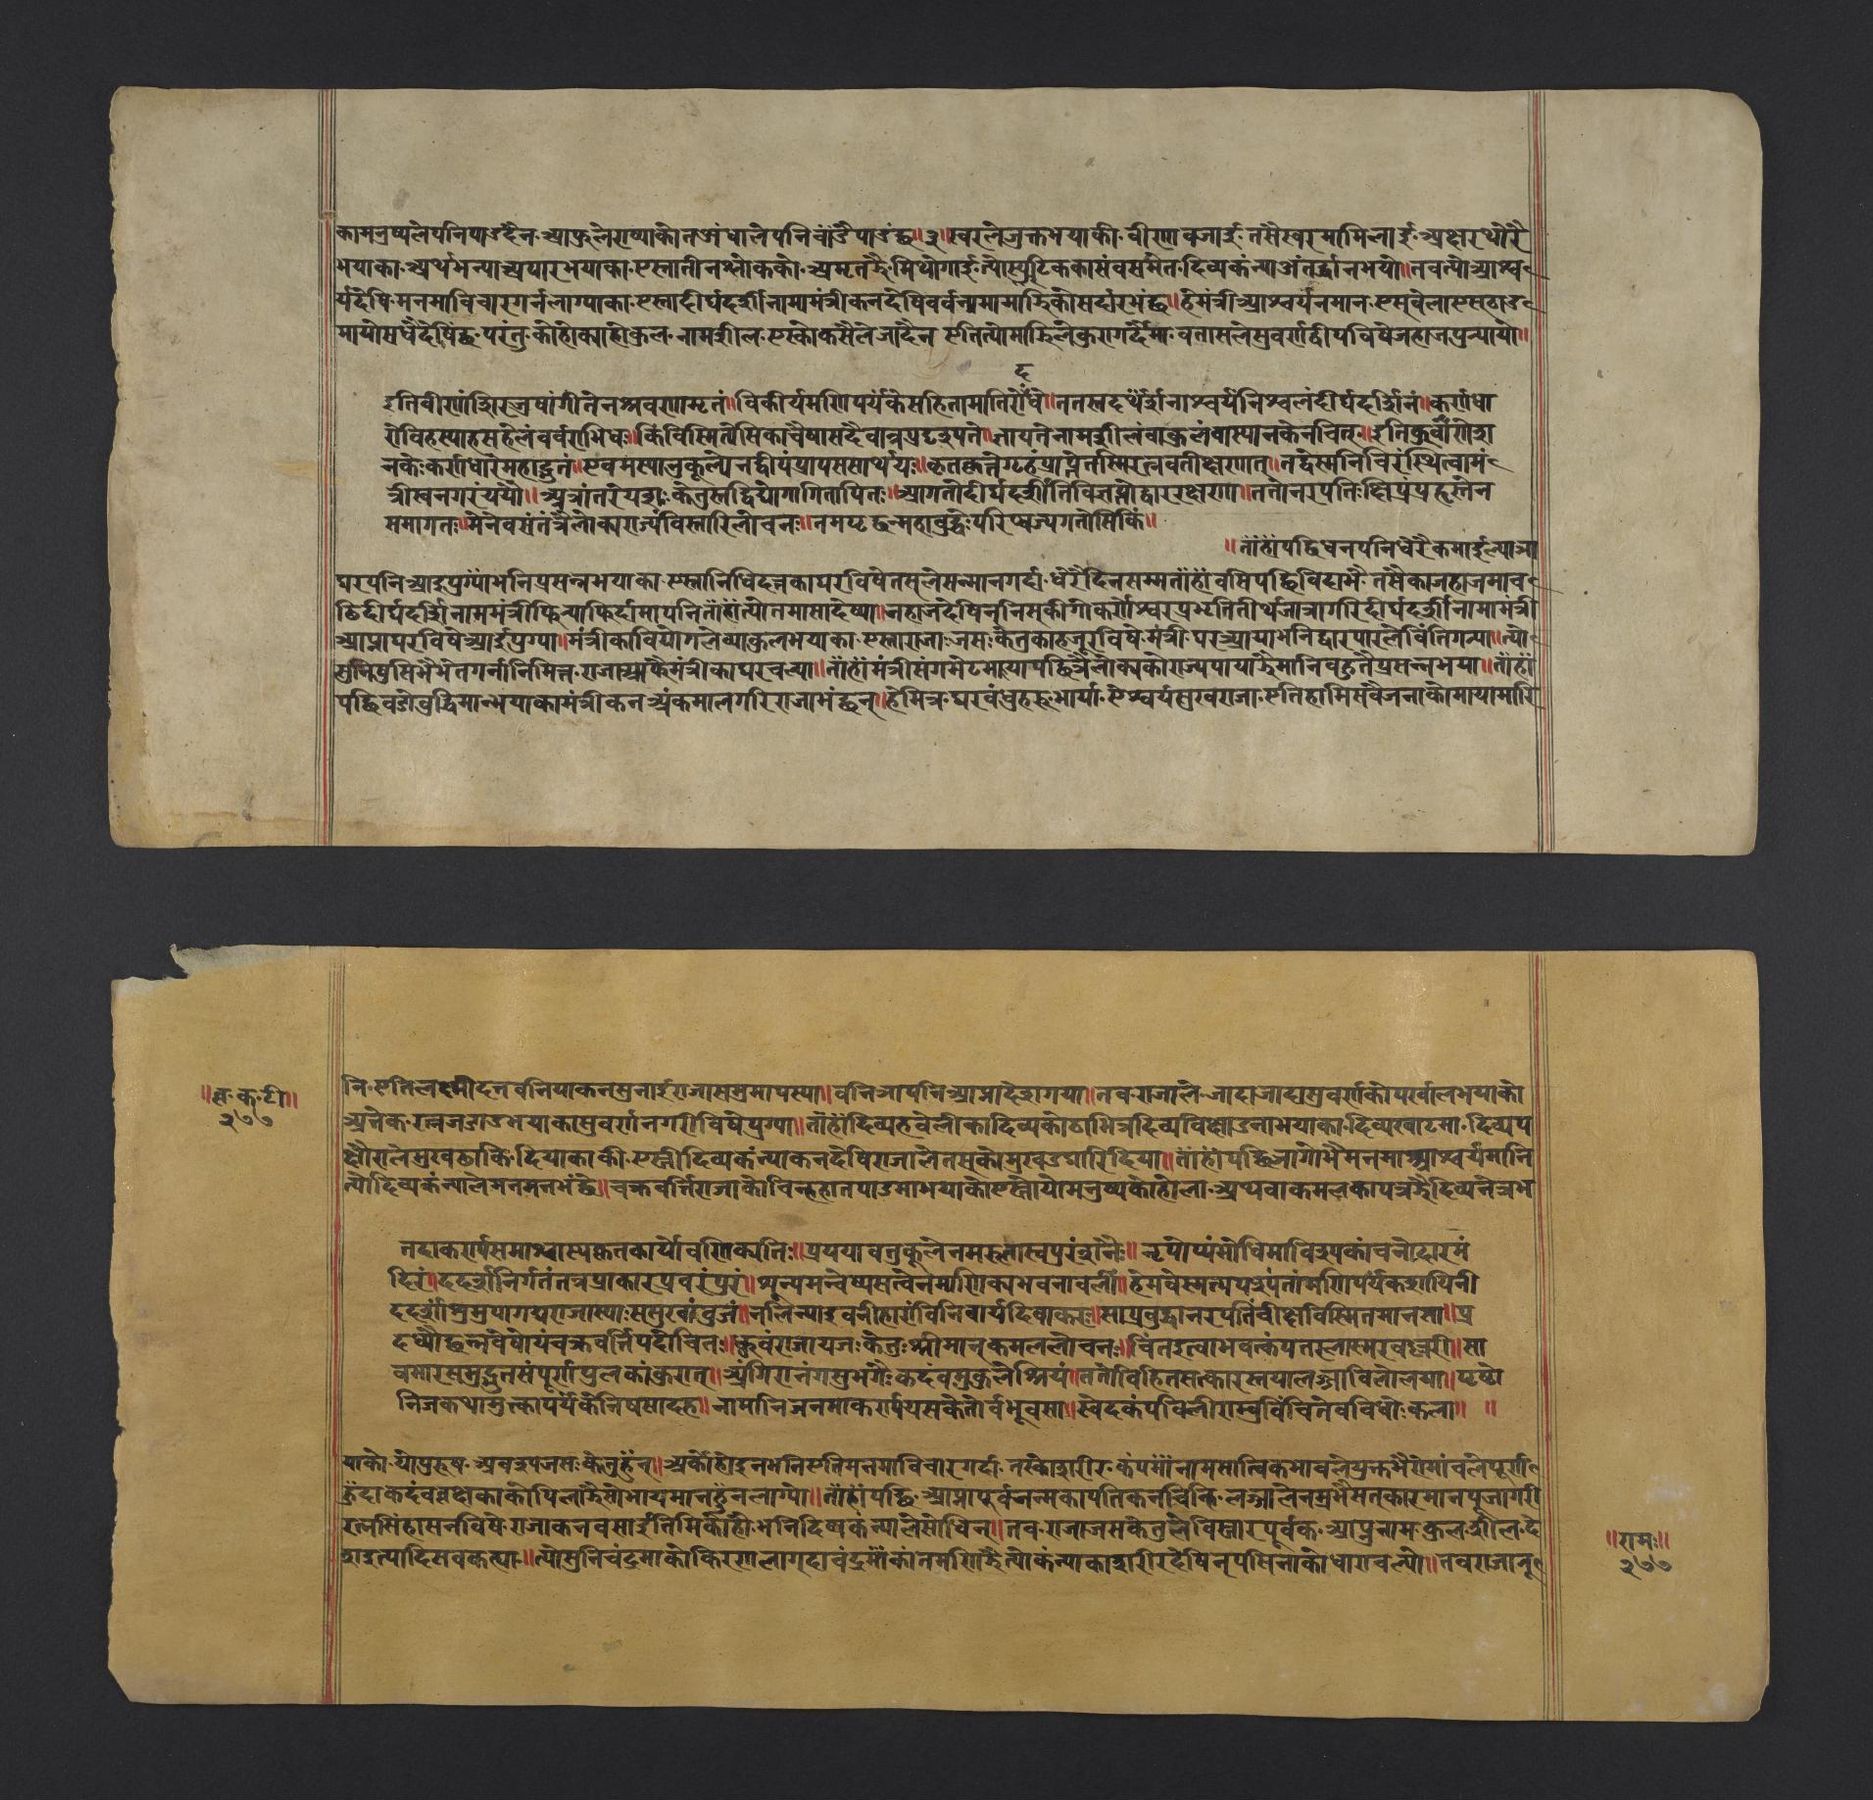 कामनुष्यलेपनिपाउदैन आफुलेराप्याकोतअंधालेपनिवांडैपाउंछ॥३॥स्वरलेजुक्तभयाकी वीणावजाई तसैस्वरमामिलाई अक्षरथोरै
भयाका अर्थभन्याअपारभयाका एस्तातीनश्लोकको अमृतझैं मिथोगाई त्योस्फुटिककासंवसमेत दिव्यकंन्याअंतर्द्धानभयो॥तवत्योआश्च
र्यदेषि मनमाविचारगर्नलाग्याका एस्तादीर्घदर्शीनामामंत्रीकनदेषिवर्वन्नामामाझिकोसर्दारभंछ॥हेमंत्रीआश्चर्यनमान एसवेलाएसठाउ
मायोसधैदेषिंछ परंतु कोहोक्याहोकुल नामशील एस्कोकसैलेजांदैन एतित्योमाझिलेकुरागर्दैमा वतासलेसुवर्णद्वीपविषेजहाजपुर्‍यायो॥
इतिवीणांशिरजुषांगीतेनश्रवणामृतं॥विकीर्यमणिपर्यंकेसहितामातिरोदधे॥ततस्तदर्थैर्शनाश्चर्यनिश्चलंदीर्घदर्शिनं॥कर्णधा
रोविहस्याहसहेलंवर्वराभिधः॥किंविस्मितोसिकाचैषासदैवात्रप्रदृश्यते॥ज्ञायतेनामशीलंवाकुलंवास्यानकेनचित्॥इतिकुर्वाणोशा
नकैःकर्णधारेमहाद्भुतं॥एवमस्यानुकूल्येनद्वीपंप्रापससार्थयः॥कृतकृत्येगृहंप्राप्नेतस्मिरत्नवतीक्षणात्॥तद्वेस्मनिचिरंस्थित्वामं
त्रीस्वनगरंययौ॥अत्रांतरेयशःकेतुस्तद्वियोगाग्नितापितः॥आगतोदीर्घदर्शीतिविज्ञप्नोद्वाररक्षणा॥ततोनरपतिःक्षिप्रंप्रहृस्तेन
समागतः॥मेनेवसंतंत्रैलोक्यराज्यंविस्तारिलोचनः॥तमपृछन्महावुद्धेःपरिष्वज्यगतोसिकिं॥
॥तांहांपछिधनपनिधेरैकमाईल्याआ
घरपनिआइपुग्यांभनिप्रसन्नभयाका एस्तानिधिदत्तकाघरविषेतसलेसन्मानगर्दा धेरैदिनसम्मतांहां वसिपछिविदाभै तसैकाजहाजमाच
ढिदीर्घदर्शिनाममंत्रीफिर्‍याफिर्दामापनितांहांत्योतमासादेष्या॥जहाजदेषिनृनिसकीगोकर्णेश्वरप्रभृतितीर्थजात्रागरिदीर्घदर्शीनामामंत्री
आप्नाघरविषेआईपुग्या॥मंत्रीकावियोगलेव्याकुलभयाका एस्ताराजा जसःकेतुकाहजूरविषे मंत्री घरआयाभनिद्वारपारलेविंतिगर्‍या॥त्यो
सुनिषुसिभैभेतगर्नानिमित्त राजाआफैमंत्रीकाघरचल्या॥तांहांमंत्रीसंगभेटमायापछित्रैलोक्यकोराज्यपायाझैमानिवहुतैप्रसन्नभया॥तांहां
पछिवडेवुद्धिमान्भयाकामंत्रीकन अंकमालगरिराजाभंछन्॥हेमित्र घरवंधुहरु भार्या ऐश्वर्यसुखराजा एतिहामिसवैजनाकोमायामारि
॥त्त॰क॰टी॥
२७७
नि एतिलक्ष्मीदत्तवनियाकनसुनाईराजासमुद्रमापस्या॥वनिञापनिआप्नादेशगया॥तव राजाले जांदाजांदासुवर्णकोपर्वालभयाको
अनेक रत्नजडाउभयाकासुवर्णनगरीविषेपुग्या॥तांहांदिव्यहवेलीकादिव्यकोठाभित्रदिव्यविछौउनाभयाका दिव्यखाटमा दिव्यप
छौरालेमुखढाकि दियाकाकी एस्ती दिव्यकंन्याकनदेषिराजालेतसकोमुखउघारिदिया॥तांहांपछिजागोभैमनमाआश्चर्यमानि
त्योदिव्यकंन्यालेमनमनभंछे॥चक्रवर्त्तिराजाकोचिन्हहातपाउमाभयाकोएस्तोयोमनुष्यकोहोला अथवाकमलकापत्रझैदिव्यनेत्रभ
तदाकर्ण्यसमाश्वास्यकृतकार्योवणिक्पतिः॥प्रययावनुकूलेनमरुतास्वपुरंशनैः॥नृपोप्यंभोधिमाविश्यकांचनोदारमं
दिरं॥ददर्शनिर्गतंतत्रप्राकारप्रवरंपुरं॥शून्यमन्वेष्यसत्वेनमणिक्यभवनावली॥हेमवेस्मन्यपश्यतांमणिपर्यंकशायिनी
ददर्शांशुमुपागद्यराजास्याःसमुखांवुजं॥नलिन्याइवनीहारांविनिवार्यदिवाकरः॥साप्रवुद्धानरपतिंवीक्ष्यविस्मितमानसा॥प्र
दध्यौछत्नवेषोयंचक्रवर्त्तिपदोचितः॥ध्रुवंराजायजःकेतुःश्रीमान्कमललोचनः॥चिंतइत्वाभवत्कंपतस्तास्मरवद्धरी॥सा
वभारसमुद्भुतसंपूर्णपुलकांकुरात्॥अंगिरानंगसुभगैःकदंवमुकुलेश्रियं॥ततोविहितसत्कारस्तयालज्ञाविलोलया॥पृष्टो
निजकथामुत्काप्यर्यकेनिषसादह॥नामानिजनमाकर्ण्ययसकेतोर्वभूवसा॥स्वेदकंपविलीरास्तुर्विंचितेवविधोःकला॥ ॥
याको योपुरुष अवश्यजस केतुहुंन्॥अर्कोहोइनभनिएतिमनमाविचारगर्दा तस्काशरीर कंपमानामसात्विकभावलेयुक्तभैरोमांचलेपूर्ण
हुंदाकदंवव्रक्षेकाकोपिलाझैसोभायमानहुंनलाग्यो॥तांहांपछि आप्नापूर्वजन्मकापतिकनचिन्हि लज्जालेनम्रभैसत्कारमानपूजागरी
रत्नसिंहासनविषे राजाकनवसाईतिमिकोहौभनिदिव्यकंन्यालेसोधिन्॥तव राजाजसकेतुलेविस्तारपूर्वक आप्नुनाम कुल शील दे
शइत्यादिसवकह्या॥त्योसुनिचंद्रमाकोकिरणलागदाचंद्रमाकांतमणिझैत्योकंन्याकाशरीरदेषिन्पसिनाकोधाराचल्यो॥तवराजानृ
॥रामः॥
२७७